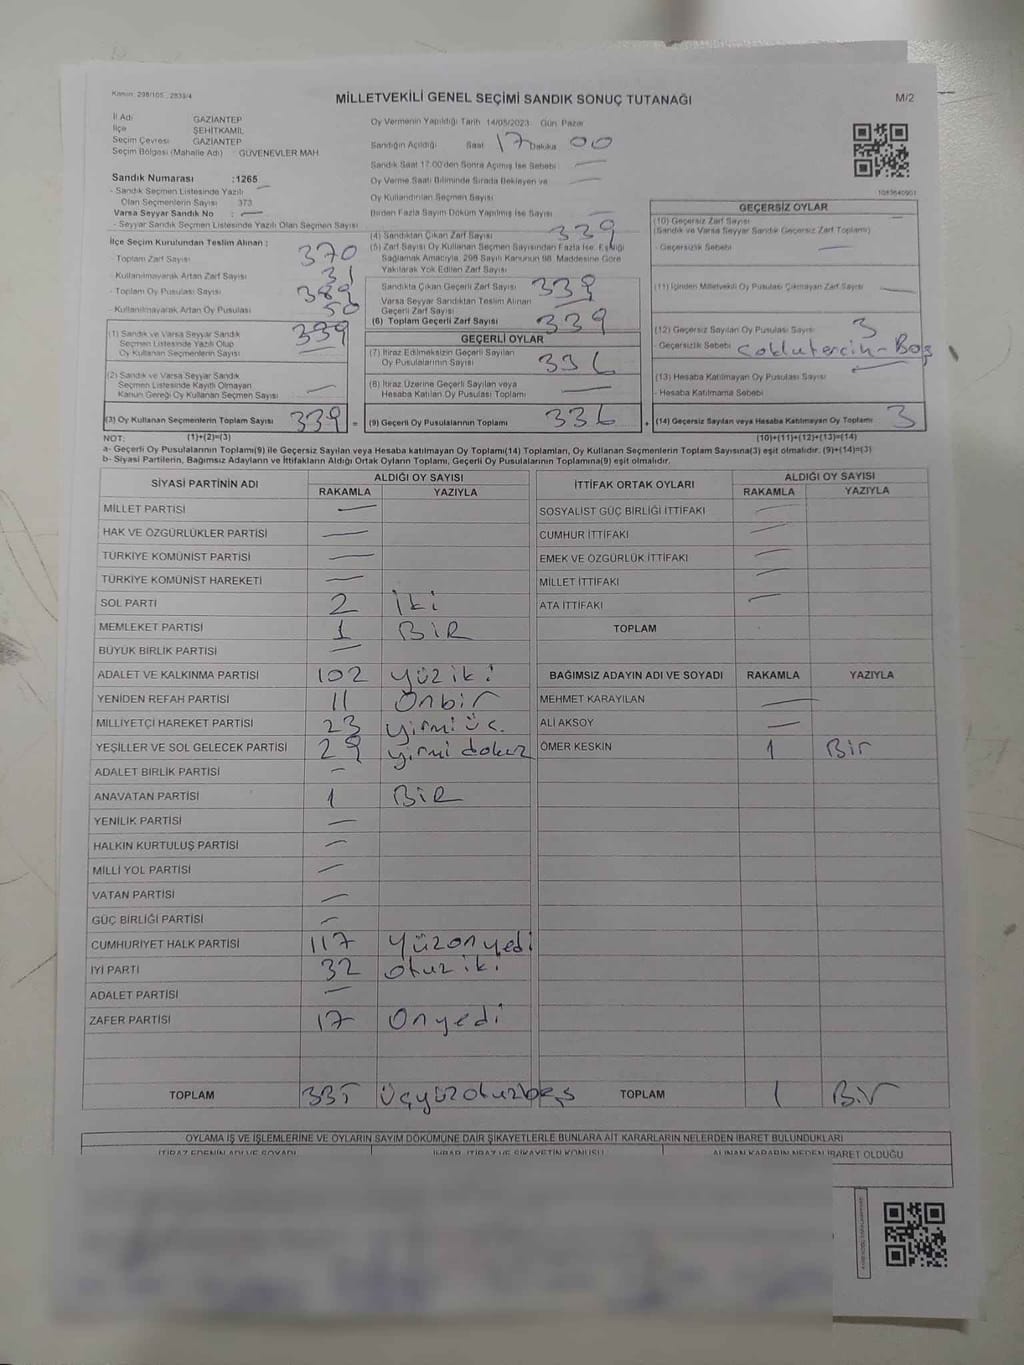 Kanun: 298/105 , 2839/4
MİLLETVEKİLİ GENEL SEÇİMİ SANDIK SONUÇ TUTANAĞI
M/2
İl Adı GAZİANTEP
İlçe ŞEHİTKAMİL
Seçim Çevresi GAZİANTEP
Seçim Bölgesi (Mahalle Adı) : GÜVENEVLER MAH
Sandık Numarası :1265
- Sandık Seçmen Listesinde Yazılı
Olan Seçmenlerin Sayısı 373
Varsa Seyyar Sandık No : —
- Seyyar Sandık Seçmen Listesinde Yazılı Olan Seçmen Sayısı
Oy Vermenin Yapıldığı Tarih 14/05/2023 Gün Pazar
Sandığın Açıldığı Saat 17 Dakika 00
Sandık Saat 17:00'den Sonra Açılmış İse Sebebi : —
Oy Verme Saati Bitiminde Sırada Bekleyen ve —
Oy Kullandırılan Seçmen Sayısı
Birden Fazla Sayım Döküm Yapılmış İse Sayısı —
10#3640901
İlçe Seçim Kurulundan Teslim Alınan :
- Toplam Zarf Sayısı 370
- Kullanılmayarak Artan Zarf Sayısı 31
- Toplam Oy Pusulası Sayısı 389
- Kullanılmayarak Artan Oy Pusulası 50
(1) Sandık ve Varsa Seyyar Sandık
Seçmen Listesinde Yazılı Olup
Oy Kullanan Seçmenlerin Sayısı 339
(2) Sandık ve Varsa Seyyar Sandık
Seçmen Listesinde Kayıtlı Olmayan
Kanun Gereği Oy Kullanan Seçmen Sayısı —
(3) Oy Kullanan Seçmenlerin Toplam Sayısı 339 =
(4) Sandıktan Çıkan Zarf Sayısı 339
(5) Zarf Sayısı Oy Kullanan Seçmen Sayısından Fazla İse, Eşitliği
Sağlamak Amacıyla, 298 Sayılı Kanunun 98. Maddesine Göre
Yakılarak Yok Edilen Zarf Sayısı
Sandıkta Çıkan Geçerli Zarf Sayısı 339
Varsa Seyyar Sandıktan Teslim Alınan
Geçerli Zarf Sayısı —
(6) Toplam Geçerli Zarf Sayısı 339
GEÇERLİ OYLAR
(7) İtiraz Edilmeksizin Geçerli Sayılan
Oy Pusulalarının Sayısı 336
(8) İtiraz Üzerine Geçerli Sayılan veya
Hesaba Katılan Oy Pusulası Toplamı —
(9) Geçerli Oy Pusulalarının Toplamı 336 +
GEÇERSİZ OYLAR
(10) Geçersiz Zarf Sayısı —
(Sandık ve Varsa Seyyar Sandık Geçersiz Zarf Toplamı)
- Geçersizlik Sebebi —
(11) İçinden Milletvekili Oy Pusulası Çıkmayan Zarf Sayısı —
(12) Geçersiz Sayılan Oy Pusulası Sayısı 3
- Geçersizlik Sebebi - Boş
(13) Hesaba Katılmayan Oy Pusulası Sayısı —
- Hesaba Katılmama Sebebi
(14) Geçersiz Sayılan veya Hesaba Katılmayan Oy Toplamı 3
NOT: (1)+(2)=(3) (10)+(11)+(12)+(13)=(14)
a- Geçerli Oy Pusulaları Toplamı(9) ile Geçersiz Sayılan veya Hesaba katılmayan Oy Toplamı(14) Toplamları, Oy Kullanan Seçmenlerin Toplam Sayısına(3) eşit olmalıdır. (9)+(14)=(3)
b- Siyasi Partilerin, Bağımsız Adayların ve İttifakların Aldığı Oyların Toplamı, Geçerli Oy Pusulalarının Toplamına(9) eşit olmalıdır.
SİYASİ PARTİNİN ADI ALDIĞI OY SAYISI
RAKAMLA YAZIYLA
MİLLET PARTİSİ —
HAK VE ÖZGÜRLÜKLER PARTİSİ —
TÜRKİYE KOMÜNİST PARTİSİ —
TÜRKİYE KOMÜNİST HAREKETİ —
SOL PARTİ 2 iki
MEMLEKET PARTİSİ 1 BİR
BÜYÜK BİRLİK PARTİSİ —
ADALET VE KALKINMA PARTİSİ 102 yüz iki
YENİDEN REFAH PARTİSİ 11 Onbir
MİLLİYETÇİ HAREKET PARTİSİ 23 yirmi üç.
YEŞİLLER VE SOL GELECEK PARTİSİ 29 yirmi dokuz
ADALET BİRLİK PARTİSİ —
ANAVATAN PARTİSİ 1 BİR
YENİLİK PARTİSİ —
HALKIN KURTULUŞ PARTİSİ —
MİLLİ YOL PARTİSİ —
VATAN PARTİSİ —
GÜÇ BİRLİĞİ PARTİSİ —
CUMHURİYET HALK PARTİSİ 117 yüzonyedi
İYİ PARTİ 32 otuz iki
ADALET PARTİSİ —
ZAFER PARTİSİ 17 Onyedi
TOPLAM 335 üçyüzotuzbeş
İTTİFAK ORTAK OYLARI ALDIĞI OY SAYISI
RAKAMLA YAZIYLA
SOSYALİST GÜÇ BİRLİĞİ İTTİFAKI —
CUMHUR İTTİFAKI —
EMEK VE ÖZGÜRLÜK İTTİFAKI —
MİLLET İTTİFAKI —
ATA İTTİFAKI —
TOPLAM
BAĞIMSIZ ADAYIN ADI VE SOYADI RAKAMLA YAZIYLA
MEHMET KARAYILAN —
ALİ AKSOY —
ÖMER KESKİN 1 Bir
TOPLAM 1 Bir
OYLAMA İŞ VE İŞLEMLERİNE VE OYLARIN SAYIM DÖKÜMÜNE DAİR ŞİKAYETLERLE BUNLARA AİT KARARLARIN NELERDEN İBARET BULUNDUKLARI
İTİRAZ EDENİN ADI VE SOYADI İHBAR, İTİRAZ VE ŞİKAYETİN KONUSU ALINAN KARARIN NEDEN İBARET OLDUĞU